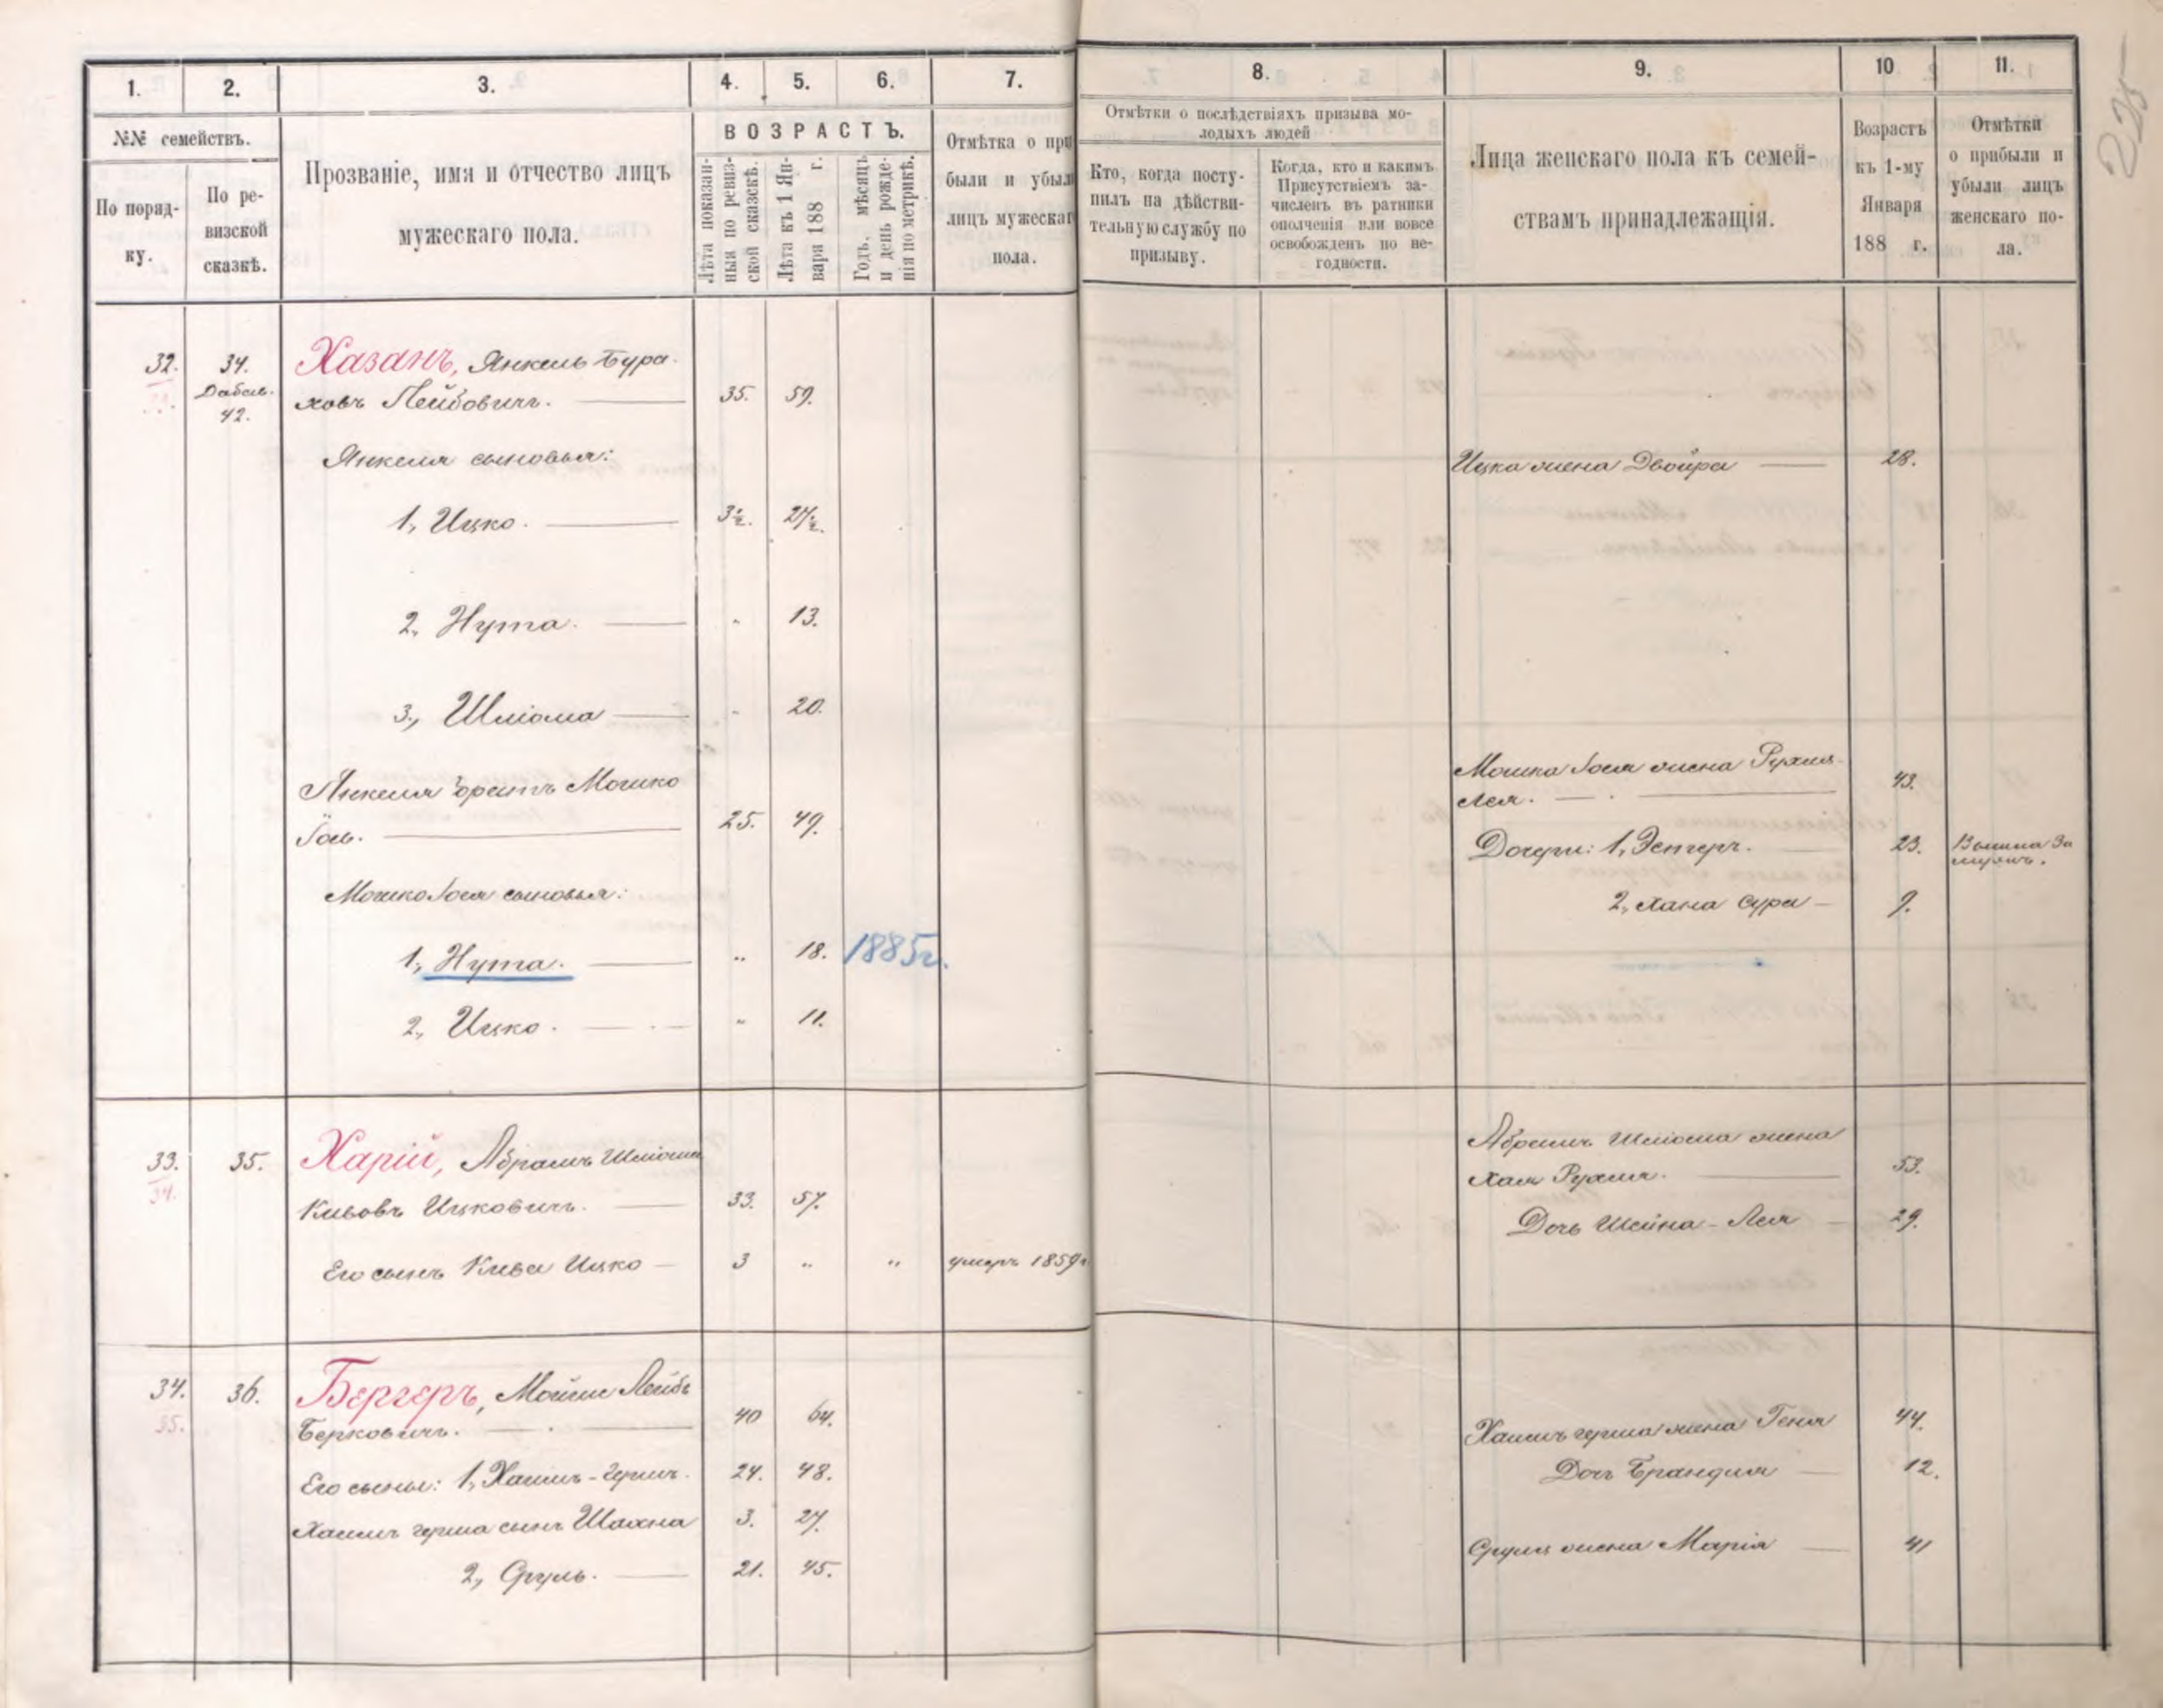 1. 2. 3. 4. 5. 6. 7.
№№ семействъ.
По порядку.
По ревизской сказкѣ.
Прозваніе, имя и отчество лицъ
мужескаго пола.
ВОЗРАСТЪ.
Лѣта показанныя по ревизской сказкѣ.
Лѣта къ 1 Января 188 г.
Годъ, мѣсяцъ и день рожденія по метрикѣ.
Отмѣтка о при
были и убыли
лицъ мужескаг
пола.
32. 34. Хазанъ, Янкель Бура-
Добав. 42.
ховъ Лейбовичъ. 35. 59.
Янкеля сыновья:
1, Ицко. 3½. 27½.
2, Нута. " 13.
3, Шліома " 20.
Янкеля братъ Мошко
Іось. 25. 49.
Мошко Іося сыновья:
1, Нута. " 18. 1885г.
2, Ицко. " 11.
33. 35. Харій, Абрамъ Шліома
34.
Кивовъ Ицковичъ. 33. 57.
Его сынъ Кива Ицко 3 " " умеръ 1859г
34. 36. Бергеръ, Мойше Лейбъ
35.
Берковичъ. 40 64.
Его сыны: 1, Хаимъ-Гершъ. 24. 48.
Хаимъ Герша сынъ Шахна 3. 27.
2, Сруль. 21. 45.
8. 9. 10 11.
Отмѣтки о послѣдствіяхъ призыва мо-
лодыхъ людей
Кто, когда посту-
пилъ на дѣйстви-
тельную службу по
призыву.
Когда, кто и какимъ
Присутствіемъ за-
численъ въ ратники
ополченія или вовсе
освобожденъ по не-
годности.
Лица женскаго пола къ семей-
ствамъ принадлежащія.
Возрастъ
къ 1-му
Января
188 г.
Отмѣтки
о прибыли и
убыли лицъ
женскаго по-
ла.
225
Ицка жена Двойра 28.
Мошка Іося жена Рухля
Лея. 43.
Дочери: 1, Эстеръ. 23. Вышла за
мужъ.
2, Хана Сура 9.
Абрамъ Шліома жена
Хая Рухля. 53.
Дочь Шейна-Лея 29.
Хаимъ Герша жена Геня 44.
Дочь Брандля 12.
Сруля жена Марія 41